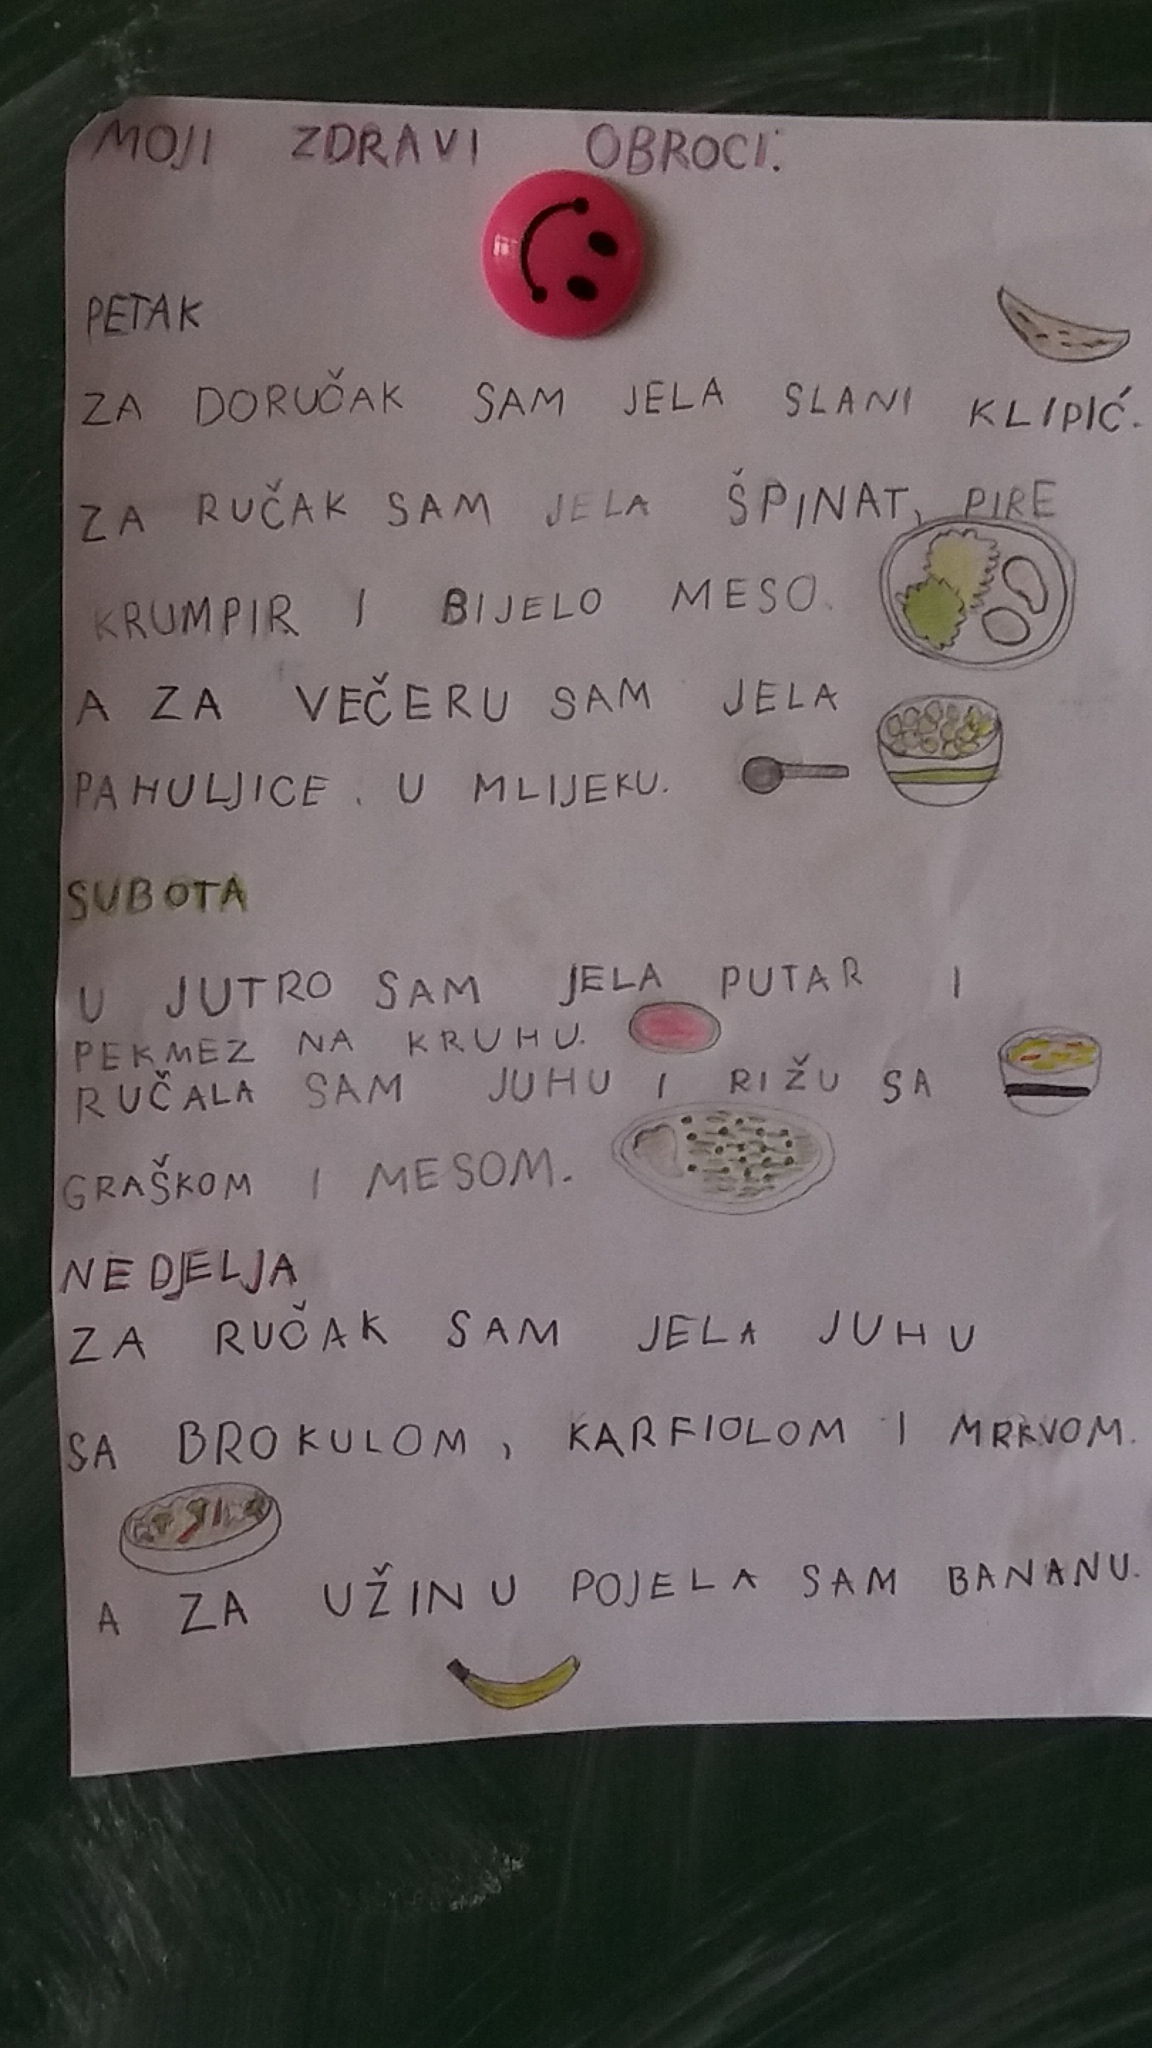 MOJI ZDRAVI OBROCI:
PETAK
ZA DORUČAK SAM JELA SLANI KLIPIĆ.
ZA RUČAK SAM JELA ŠPINAT, PIRE
KRUMPIR I BIJELO MESO.
A ZA VEČERU SAM JELA
PAHULJICE . U MLIJEKU.
SUBOTA
U JUTRO SAM JELA PUTAR I
PEKMEZ NA KRUHU.
RUČALA SAM JUHU I RIŽU SA
GRAŠKOM I MESOM.
NEDJELJA
ZA RUČAK SAM JELA JUHU
SA BROKULOM, KARFIOLOM I MRKVOM.
A ZA UŽINU POJELA SAM BANANU.